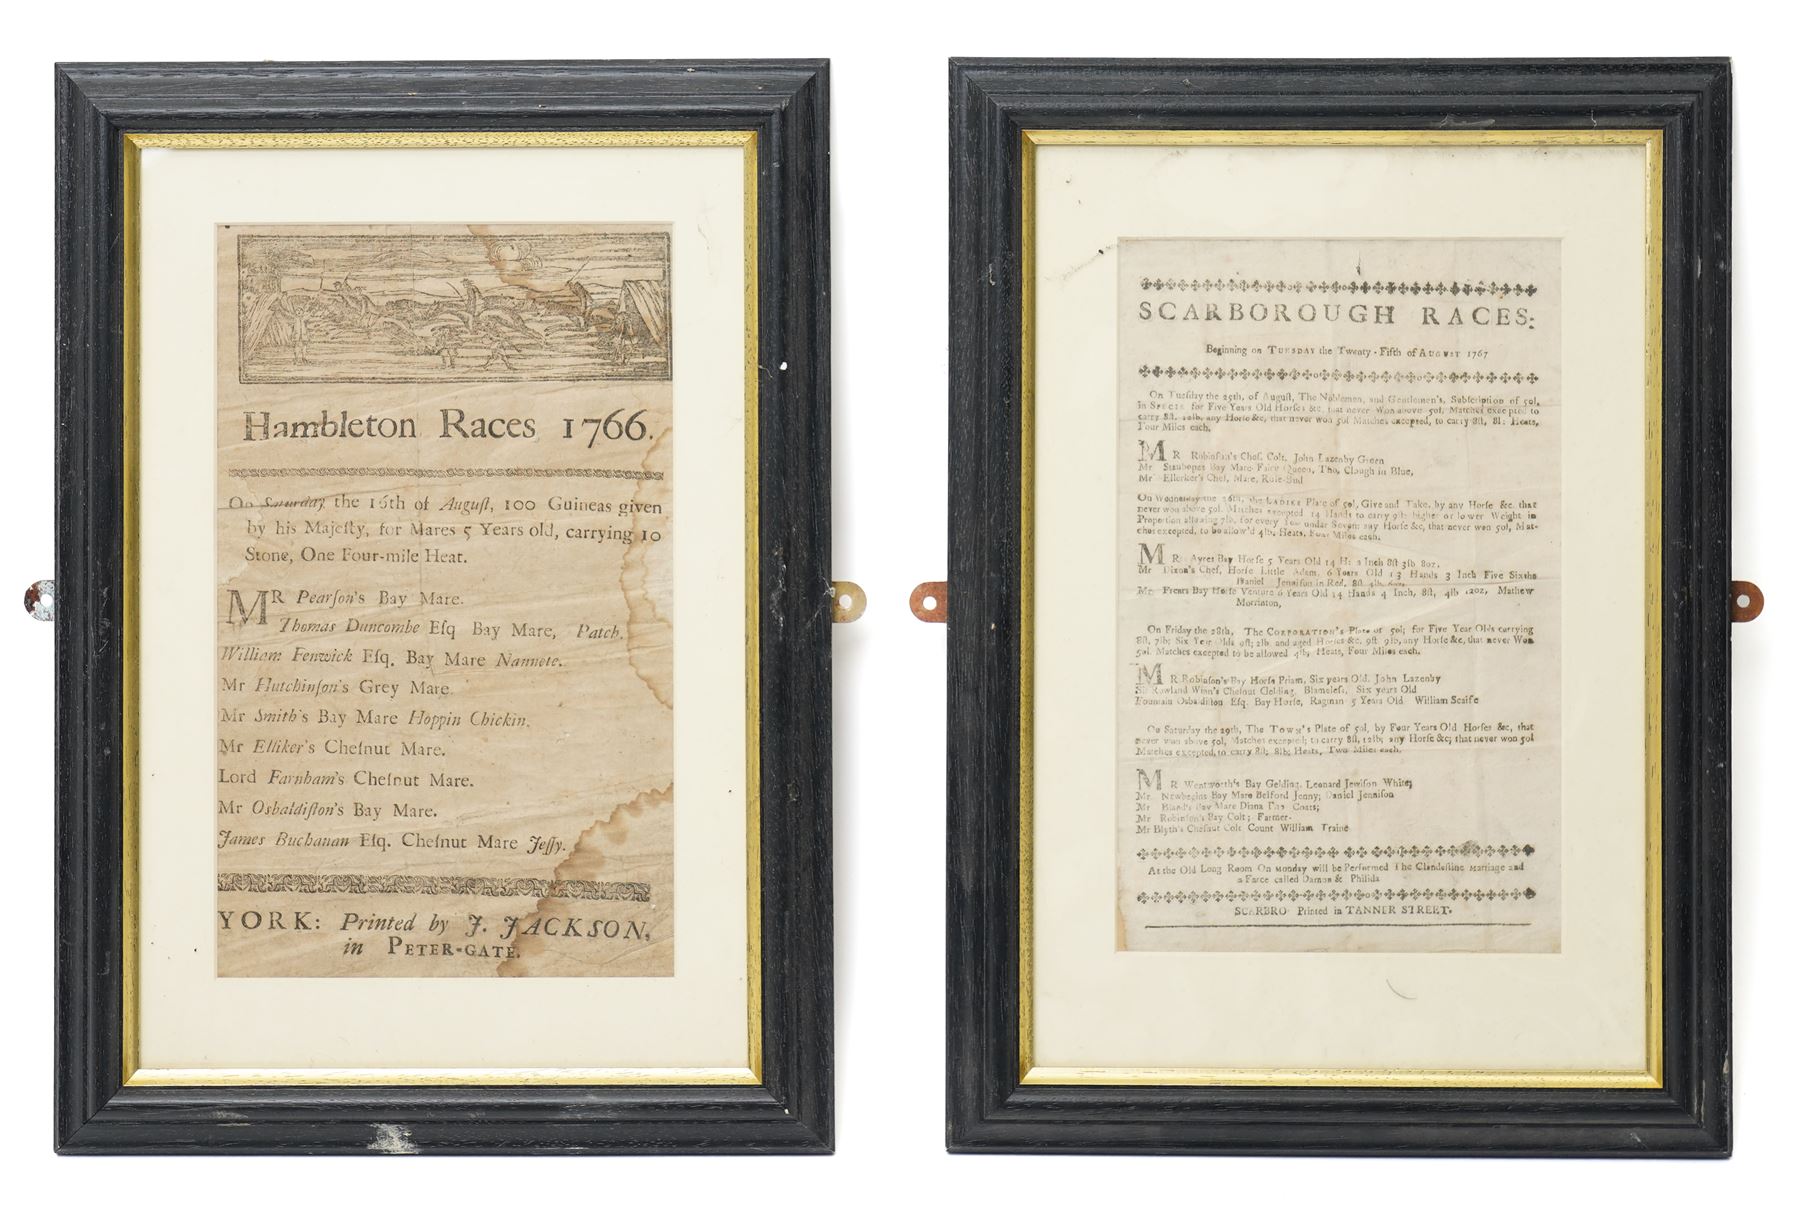 Hambleton Races 1766.
On Saturday the 16th of Auguſt, 100 Guineas given
by his Majeſty, for Mares 5 Years old, carrying 10
Stone, One Four-mile Heat.
MR Pearſon's Bay Mare.
Thomas Duncombe Eſq Bay Mare, Patch.
William Fenwick Eſq. Bay Mare Nannete.
Mr Hutchinſon's Grey Mare.
Mr Smith's Bay Mare Hoppin Chickin.
Mr Elliker's Cheſnut Mare.
Lord Farnham's Cheſnut Mare.
Mr Osbaldiſton's Bay Mare.
James Buchanan Eſq. Cheſnut Mare Jeſſy.
YORK: Printed by J. JACKSON,
in PETER-GATE.
SCARBOROUGH RACES:
Beginning on TUESDAY the Twenty-Fifth of AUGUST 1767
On Tueſday the 25th, of Auguſt, The Noblemen, and Gentlemen's, Subſcription of 50l,
in SPECIE for Five Years Old Horſes &c, that never Won above 50l, Matches excepted to
carry 8ſt. 12lb, any Horſe &c, that never won 50l Matches excepted, to carry 8ſt, 8l: Heats,
Four Miles each.
MR Robinſon's Cheſ. Colt, John Lazenby Green
Mr Stanhopes Bay Mare Faire Queen, Tho, Clough in Blue,
Mr Ellerker's Cheſ, Mare, Roſe-Bud
On Wedneſday the 26th, the LADIES Plate of 50l, Give and Take, by any Horſe &c. that
never won above 50l. Matches excepted 14 Hands to carry 9ſt: higher or lower Weight in
Proportion allowing 7lb, for every Year under Seven: any Horſe &c, that never won 50l, Mat-
ches excepted, to be allow'd 4lb, Heats, Four Miles each.
MR Ayres Bay Horſe 5 Years Old 14 H: 2 Inch 8ſt 3lb 8oz,
Mr Dixon's Cheſ, Horſe Little Adam, 6 Years Old 13 Hands 3 Inch Five Sixths
Daniel Jenniſon in Red, 8ſt 4lb
Mr Frears Bay Horſe Venture 6 Years Old 14 Hands 4 Inch, 8ſt, 4lb 12oz, Mathew
Morrinton,
On Friday the 28th, The CORPORATION's Plate of 50l; for Five Year Olds carrying
8ſt, 7lb; Six Year Olds 9ſt; 2lb and aged Horſes &c, 9ſt 9lb, any Horſe &c, that never Won
50l. Matches excepted to be allowed 4lb, Heats, Four Miles each.
MR Robinſon's Bay Horſe Priam, Six years Old. John Lazenby
Sir Rowland Winn's Cheſnut Gelding, Blameleſs, Six years Old
Fountain Osbaldiſton Eſq. Bay Horſe, Ragman 5 Years Old William Scaiſe
On Saturday the 29th, The TOWN's Plate of 50l, by Four Years Old Horſes &c, that
never won above 50l, Matches excepted; to carry 8ſt, 12lb; any Horſe &c; that never won 50l
Matches excepted, to carry 8ſt; 8lb; Heats, Two Miles each.
MR Wentworth's Bay Gelding, Leonard Jewiſon White;
Mr Newbegins Bay Mare Belford Jenny; Daniel Jenniſon
Mr Bland's Bay Mare Diana Coats;
Mr Robinſon's Bay Colt; Farmer.
Mr Blyth's Cheſnut Colt Count William Traine
At the Old Long Room On Monday will be Performed The Clandeſtine Marriage and
a Farce called Damon & Philida
SCARBRO Printed in TANNER STREET.